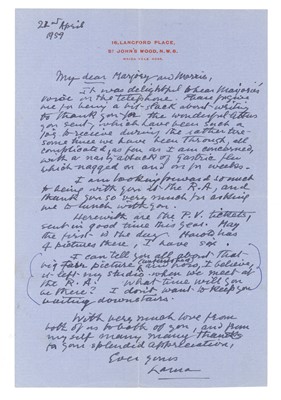 22nd April
1959
19, LANGFORD PLACE,
ST JOHN'S WOOD, N.W.8.
My dear Marjory and Morris,
It was delightful to hear Marjorie's
voice on the telephone. Please forgive
me for being a bit slack about writing
to thank you for the wonderful letters
you sent, which have been such a
joy to receive during the rather tire-
some time we have been through, all
complicated, as far as I am concerned,
with a nasty attack of Gastric flu
which nagged on and on for weeks.
I am looking forward so much
to being with you at the R.A., and
thank you so very much for asking
me to lunch with you.
Herewith are the P.V. tickets,
sent in good time this year. May
the first is the day. Harold has
4 pictures there, I have six.
I can tell you all about that
big picture
it left my studio when we meet at
the R.A. What time will you
be there? I don't want to keep you
waiting downstairs.
With very much love from
both of us to both of you, and from
myself many many thanks
for your splendid appreciation,
Ever yours
Laura